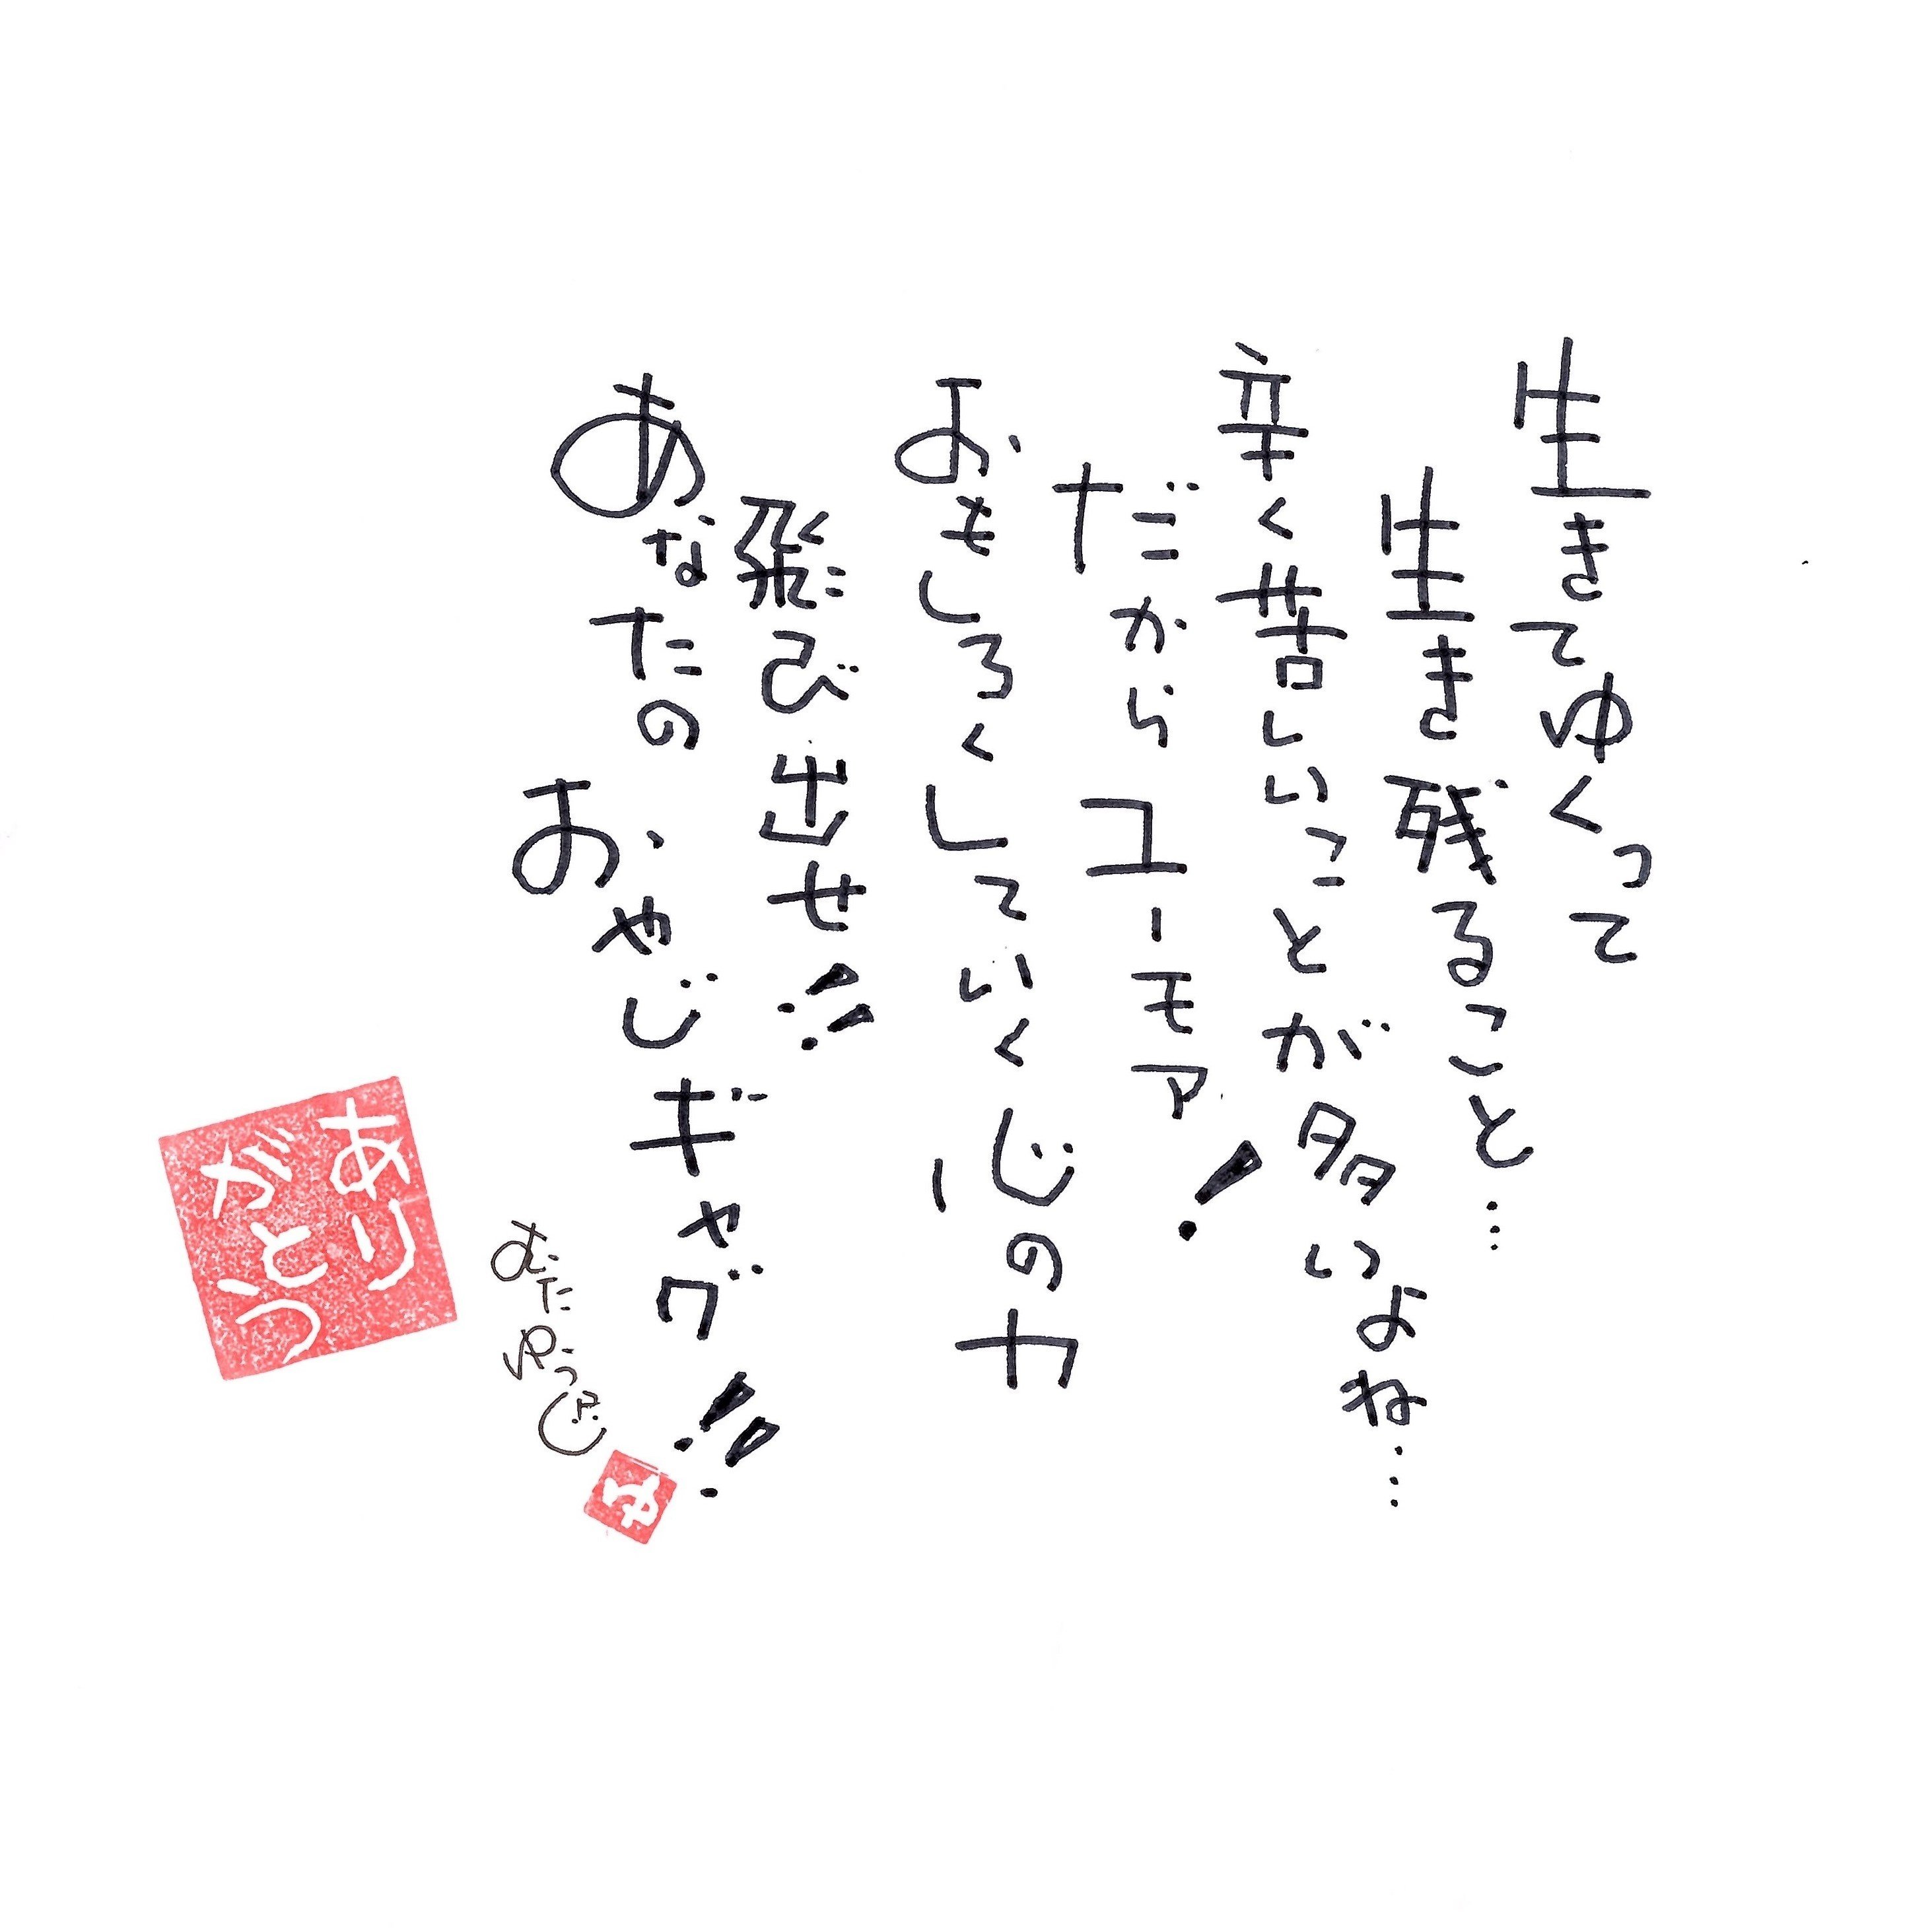 生きてゆくって
生き残ること…
辛く苦しいことが多いよね…
だから ユーモア!
おもしろくしていく心の力
飛び出せ!!
あなたの おやじギャグ!!
ゆ
あり
がとう